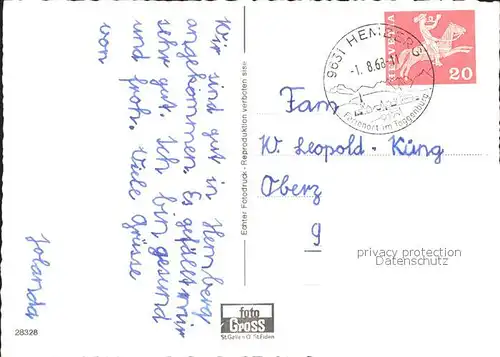 Wir sind gut in Hemberg
angekommen. Es gefällt mir
sehr gut. Ich bin gesund
und froh. Viele Grüsse
von
Jolanda
28328
Echter Fotodruck - Reproduktion verboten
foto
Gross
St. Gallen
9631 HEMBERG
-1.8.68-
Ferienort im Toggenburg
HELVETIA
20
Fam
W. Leopold - Küng
Oberz
9
privacy protection
Datenschutz